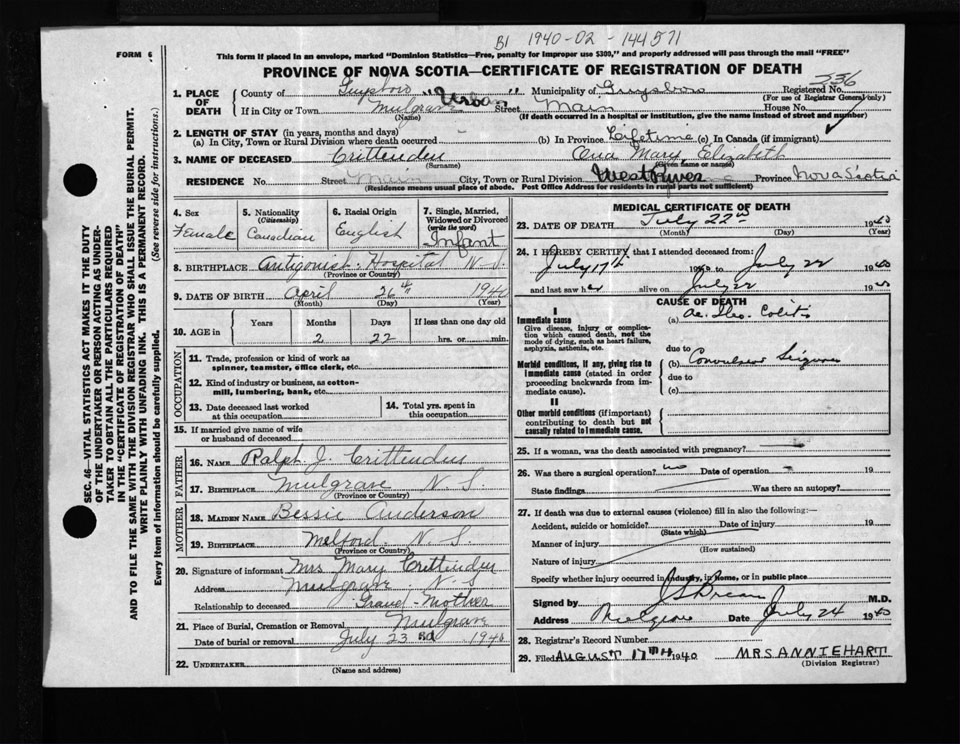 B1 1940-02-144571
FORM 6
This form if placed in an envelope, marked "Dominion Statistics—Free, penalty for improper use $300," and properly addressed will pass through the mail "FREE"
PROVINCE OF NOVA SCOTIA—CERTIFICATE OF REGISTRATION OF DEATH
336
1. PLACE OF DEATH
County of Guysboro "Urban" Municipality of Guysboro Registered No.
(For use of Registrar General only)
If in City or Town Mulgrave Street Main House No.
(Name) (If death occurred in a hospital or institution, give the name instead of street and number)
2. LENGTH OF STAY (in years, months and days)
(a) In City, Town or Rural Division where death occurred (b) In Province Lifetime (c) In Canada (if immigrant)
3. NAME OF DECEASED Crittenden Mary Elizabeth
(Surname) (Given name or names)
RESIDENCE No. Street Main City, Town or Rural Division West River Province Nova Scotia
(Residence means usual place of abode. Post Office Address for residents in rural parts not sufficient)
4. Sex
Female
5. Nationality
(Citizenship)
Canadian
6. Racial Origin
English
7. Single, Married, Widowed or Divorced
(write the word)
Infant
8. BIRTHPLACE Antigonish Hospital N.S.
(Province or Country)
9. DATE OF BIRTH April 26th 1940
(Month) (Day) (Year)
10. AGE in Years Months Days If less than one day old
2 22 hrs. or min.
OCCUPATION
11. Trade, profession or kind of work as spinner, teamster, office clerk, etc.
12. Kind of industry or business, as cotton-mill, lumbering, bank, etc.
13. Date deceased last worked at this occupation
14. Total yrs. spent in this occupation
15. If married give name of wife or husband of deceased
FATHER
16. Name Ralph J. Crittenden
17. Birthplace Mulgrave N.S.
(Province or Country)
MOTHER
18. Maiden Name Bessie Anderson
19. Birthplace Milford N.S.
(Province or Country)
20. Signature of informant Mrs Mary Crittenden
Address Mulgrave N.S
Relationship to deceased Grand-Mother
21. Place of Burial, Cremation or Removal Mulgrave
Date of burial or removal July 23 rd 1940
22. Undertaker
(Name and address)
MEDICAL CERTIFICATE OF DEATH
23. DATE OF DEATH July 22nd 1940
(Month) (Day) (Year)
24. I HEREBY CERTIFY that I attended deceased from:
July 17th 1940 to July 22 1940
and last saw her alive on July 22 1940
CAUSE OF DEATH
I
Immediate cause
Give disease, injury or complication which caused death, not the mode of dying, such as heart failure, asphyxia, asthenia, etc.
(a) Ac. Ileo. Colitis
due to
Morbid conditions, if any, giving rise to immediate cause (stated in order proceeding backwards from immediate cause).
(b)
due to
(c)
II
Other morbid conditions (if important) contributing to death but not causally related to immediate cause.
25. If a woman, was the death associated with pregnancy?
26. Was there a surgical operation? no Date of operation 19
State findings Was there an autopsy?
27. If death was due to external causes (violence) fill in also the following:—
Accident, suicide or homicide? Date of injury 19
(State which)
Manner of injury
(How sustained)
Nature of injury
Specify whether injury occurred in industry, in home, or in public place
Signed by M.D.
Address Mulgrave Date July 24 1940
28. Registrar's Record Number
29. Filed AUGUST 17TH 1940 MRS ANNIE HART
(Division Registrar)
SEC. 46—VITAL STATISTICS ACT MAKES IT THE DUTY
OF THE UNDERTAKER OR PERSON ACTING AS UNDER-
TAKER TO OBTAIN ALL THE PARTICULARS REQUIRED
IN THE "CERTIFICATE OF REGISTRATION OF DEATH"
AND TO FILE THE SAME WITH THE DIVISION REGISTRAR WHO SHALL ISSUE THE BURIAL PERMIT.
WRITE PLAINLY WITH UNFADING INK. THIS IS A PERMANENT RECORD.
Every item of information should be carefully supplied. (See reverse side for instructions.)